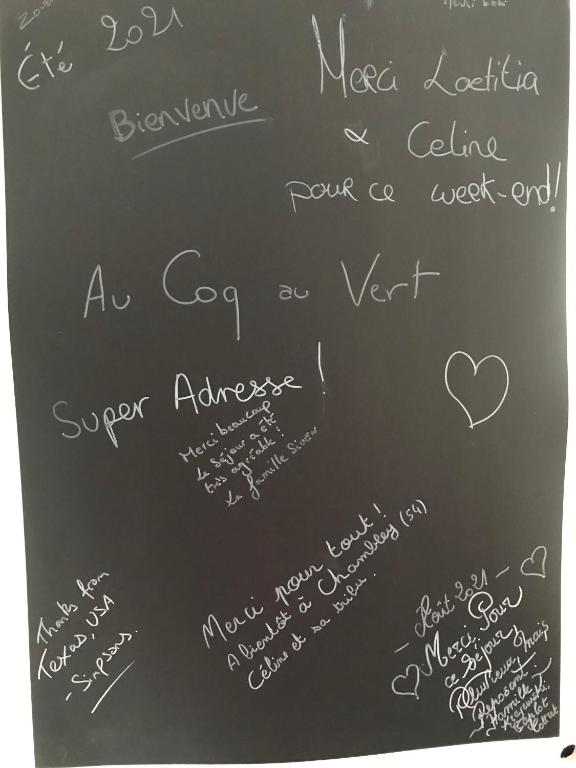 Été 2021
Merci Laetitia
& Celine
pour ce week-end!
Bienvenue
Au Coq au Vert
Super Adresse !
Merci beaucoup
Le séjour a été
très agréable !
La famille
Merci pour tout !
A bientôt à Chambley (54)
Céline et sa tribu.
Thanks from
Texas, USA
- Simpsons.
- Août 2021 -
Merci Pour
ce Séjour
Pluvieux mais
Reposant.
Famille